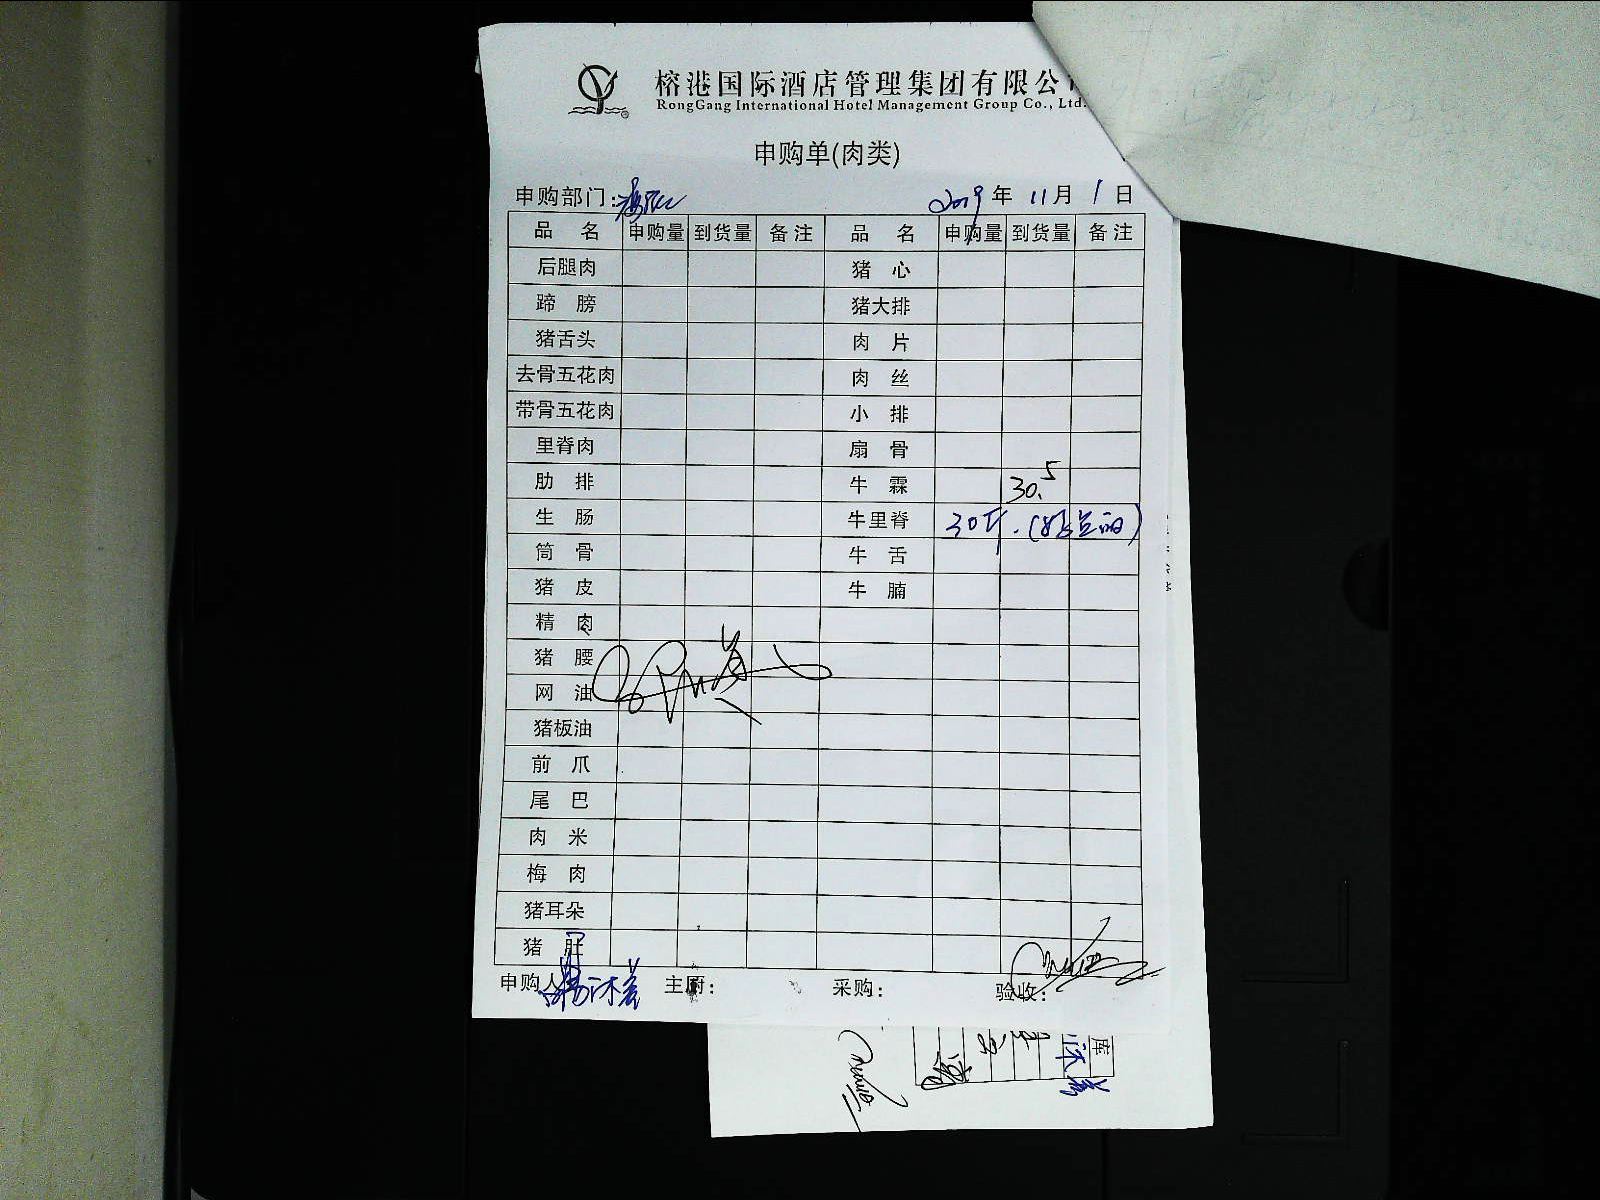 榕港国际酒店管理集团有限公司
RongGang International Hotel Management Group Co., Ltd.
申购单(肉类)
申购部门: 2019年 11月 1日
品 名 申购量 到货量 备注 品 名 申购量 到货量 备注
后腿肉 猪 心
蹄 膀 猪大排
猪舌头 肉 片
去骨五花肉 肉 丝
带骨五花肉 小 排
里脊肉 扇 骨
肋 排 牛 霖 30.5
生 肠 牛里脊 30斤.
筒 骨 牛 舌
猪 皮 牛 腩
精 肉
猪 腰
网 油
猪板油
前 爪
尾 巴
肉 米
梅 肉
猪耳朵
猪 肚
申购人 主厨: 采购: 验收:
库